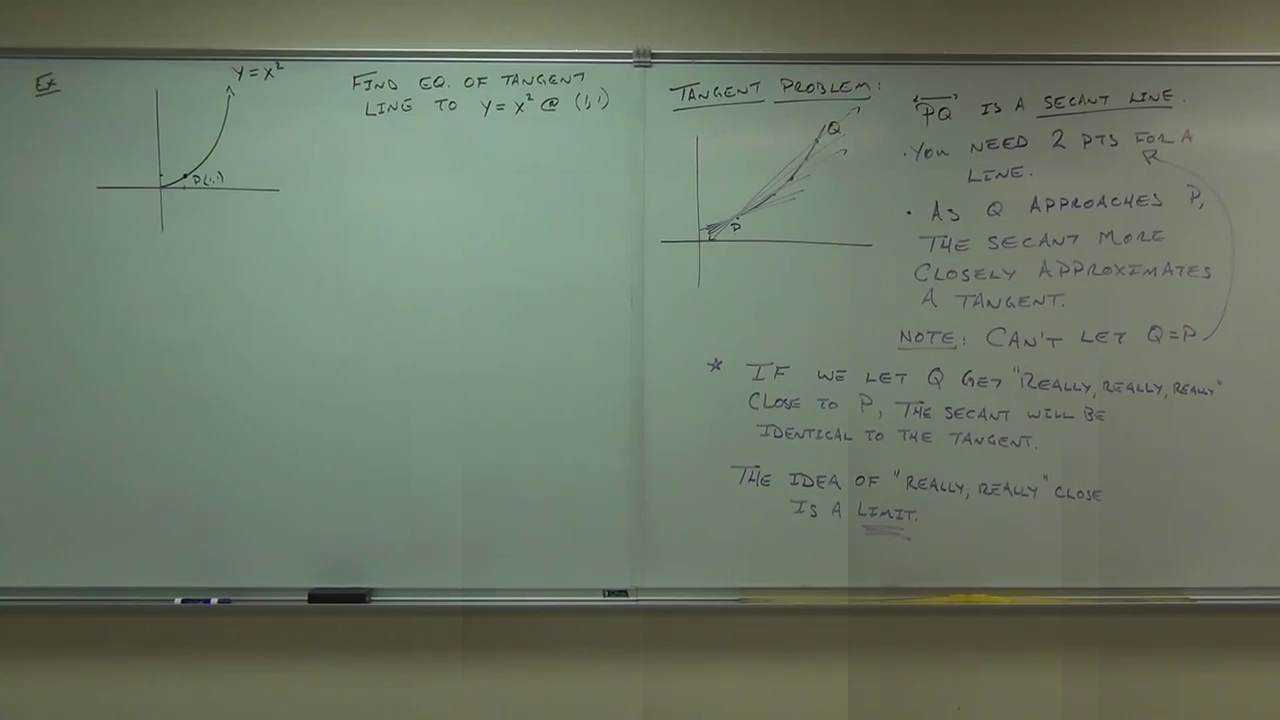 Ex
y = x²
P(1,1)
FIND EQ. OF TANGENT
LINE TO y = x² @ (1,1)
TANGENT PROBLEM:
Q
P
PQ IS A SECANT LINE.
• YOU NEED 2 PTS FOR A
LINE.
• AS Q APPROACHES P,
THE SECANT MORE
CLOSELY APPROXIMATES
A TANGENT.
NOTE: CAN'T LET Q=P
* IF WE LET Q GET "REALLY, REALLY, REALLY"
CLOSE TO P, THE SECANT WILL BE
IDENTICAL TO THE TANGENT.
THE IDEA OF "REALLY, REALLY" CLOSE
IS A LIMIT.